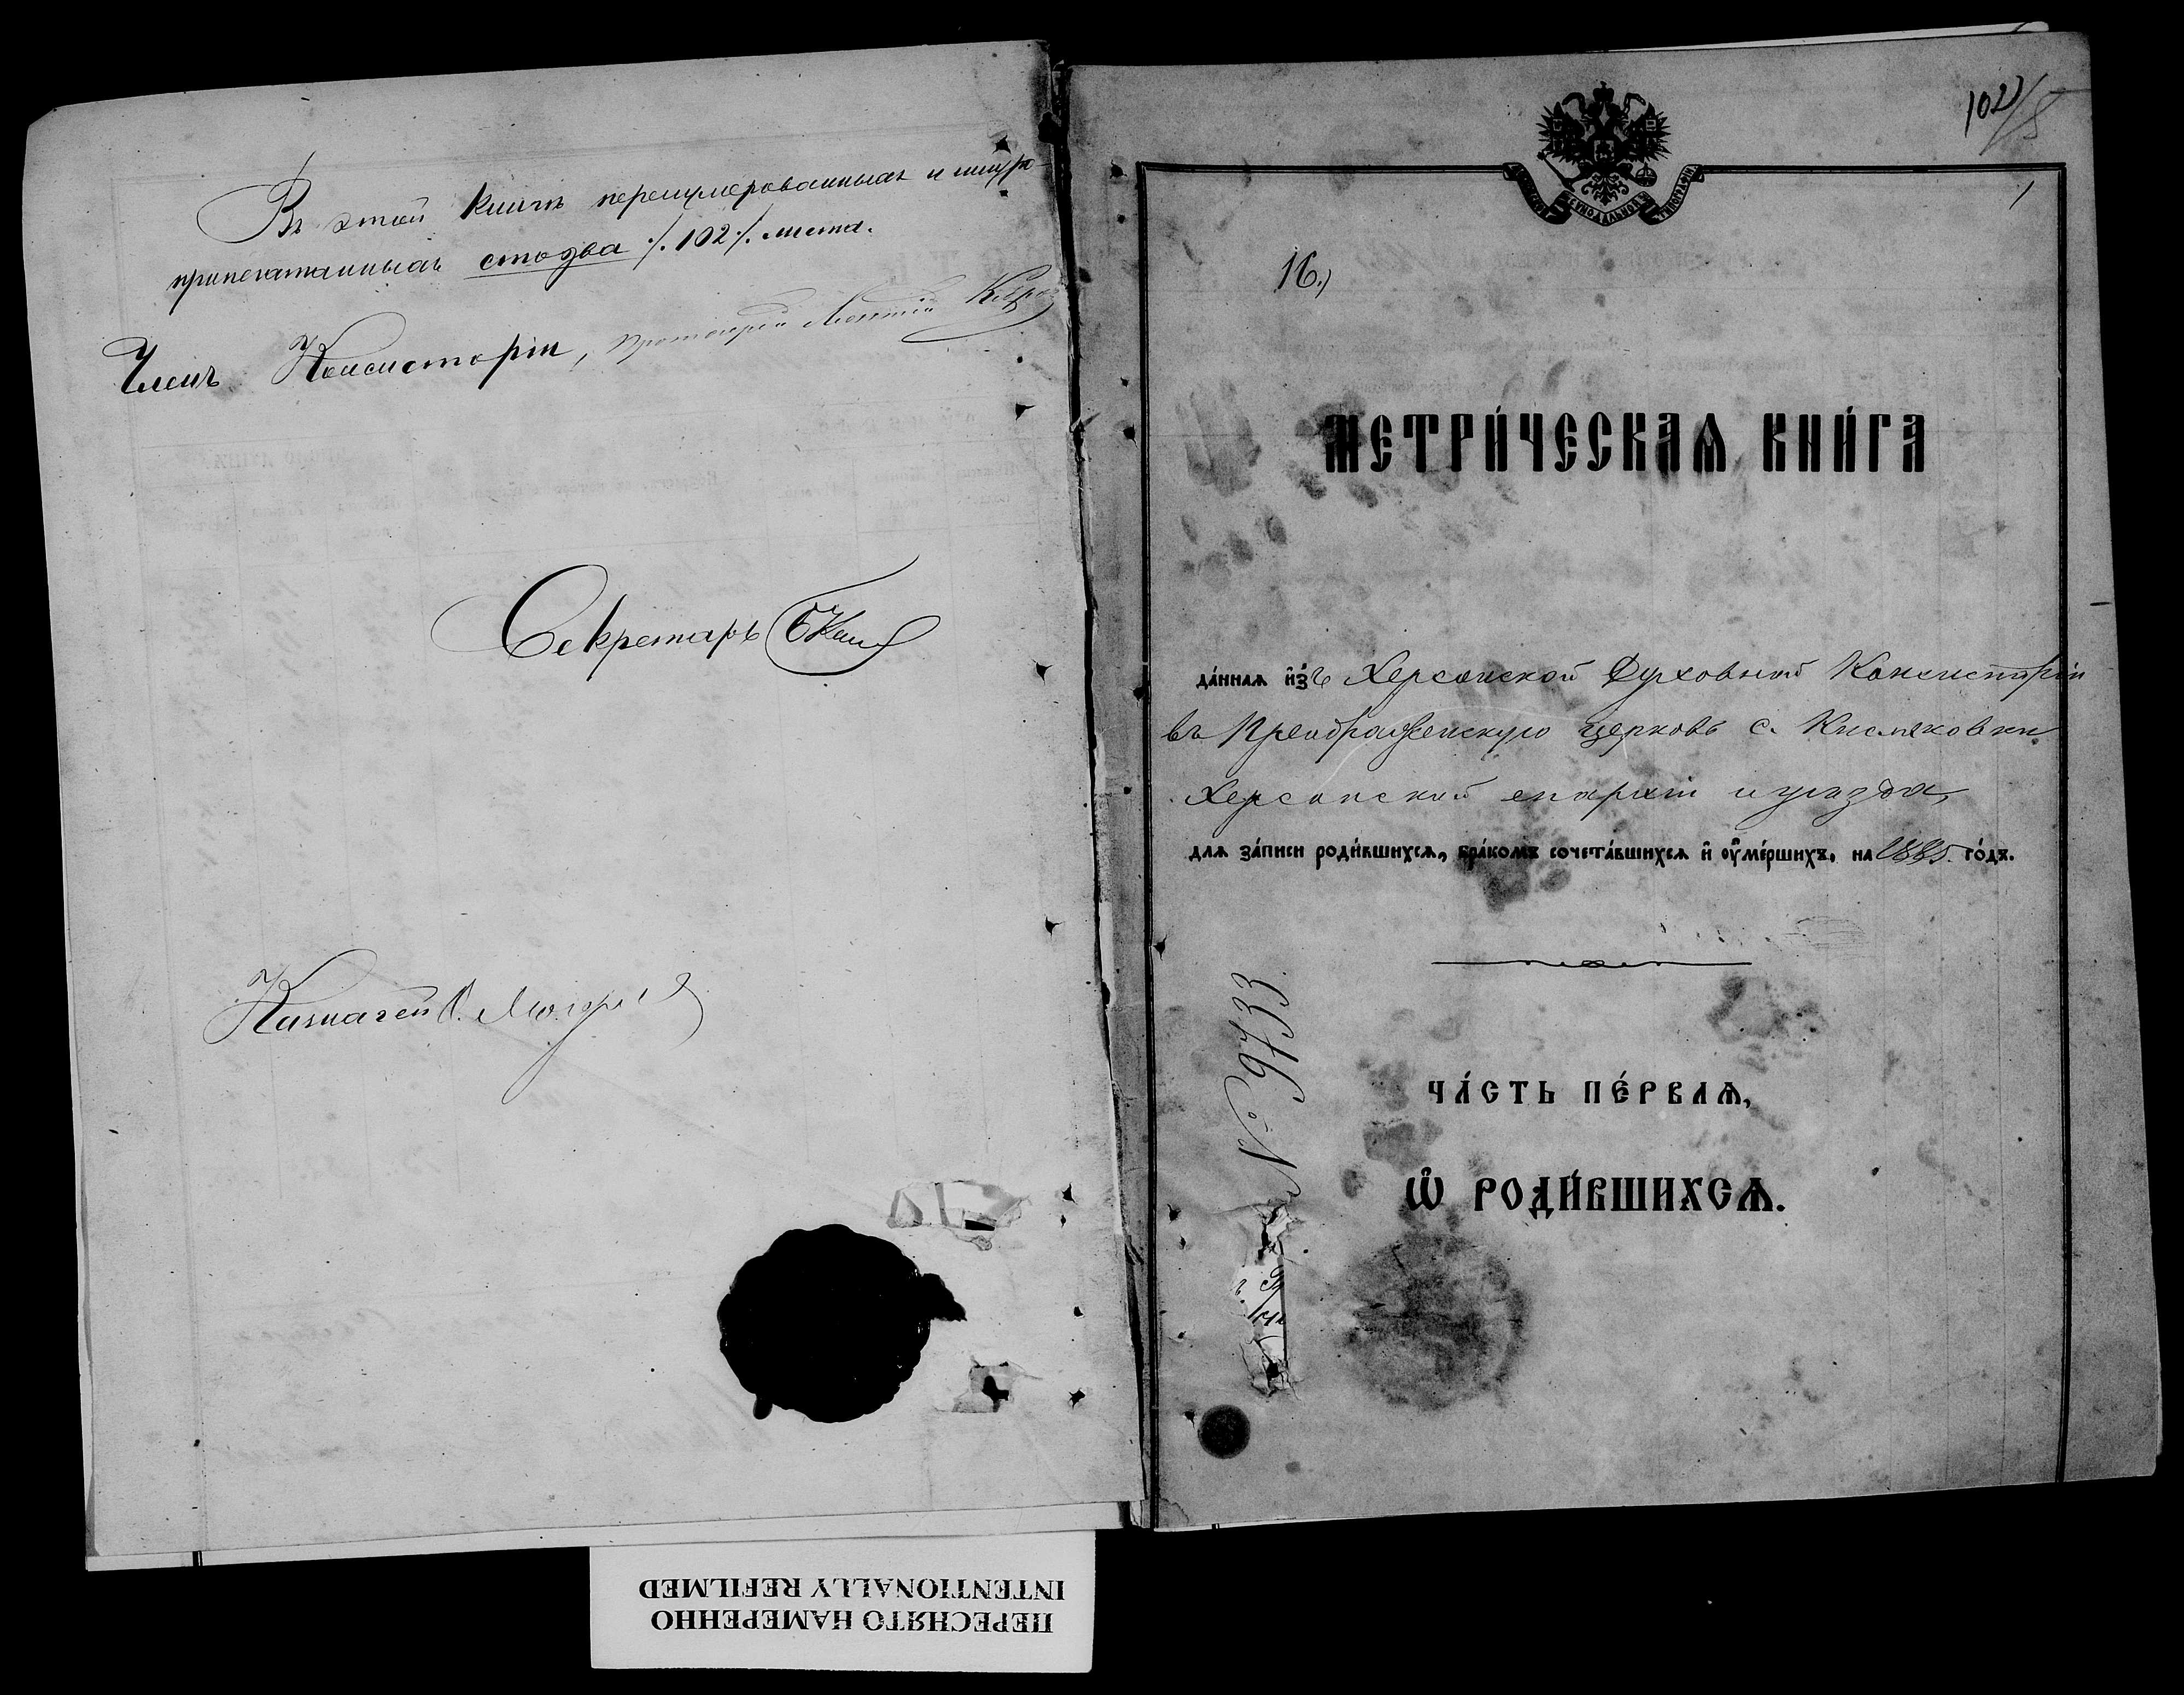 Въ этой книгѣ перенумерованныхъ и шнуро-
припечатанныхъ сто два ./.102./. листа.
Членъ Консисторіи, протоіерей
Секретарь
Казначей
102
1
16.)
МЕТРИ́ЧЕСКАѦ КНИ́ГА
да́ннаѧ и҆зъ Херсонской Духовной Консисторіи
въ Преображенскую церковь с. Кисляковки
Херсонской епархіи и уѣзда,
длѧ за́писи роди́вшихсѧ, бра́комъ сочета́вшихсѧ и҆ ᲂу҆ме́ршихъ, на 1885. го́дъ.
№ 9733.
ЧА́СТЬ ПЕ́РВАѦ,
Ѽ РОДИ́ВШИХСѦ.
ПЕРЕСНЯТО НАМЕРЕННО
INTENTIONALLY REFILMED